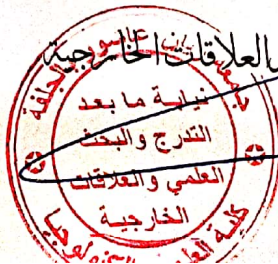 العلاقات الخارجية
زيان عاشور الجلفة
نيابة ما بعد
التدرج والبحث
العلمي والعلاقات
الخارجية
كلية العلوم والتكنولوجيا